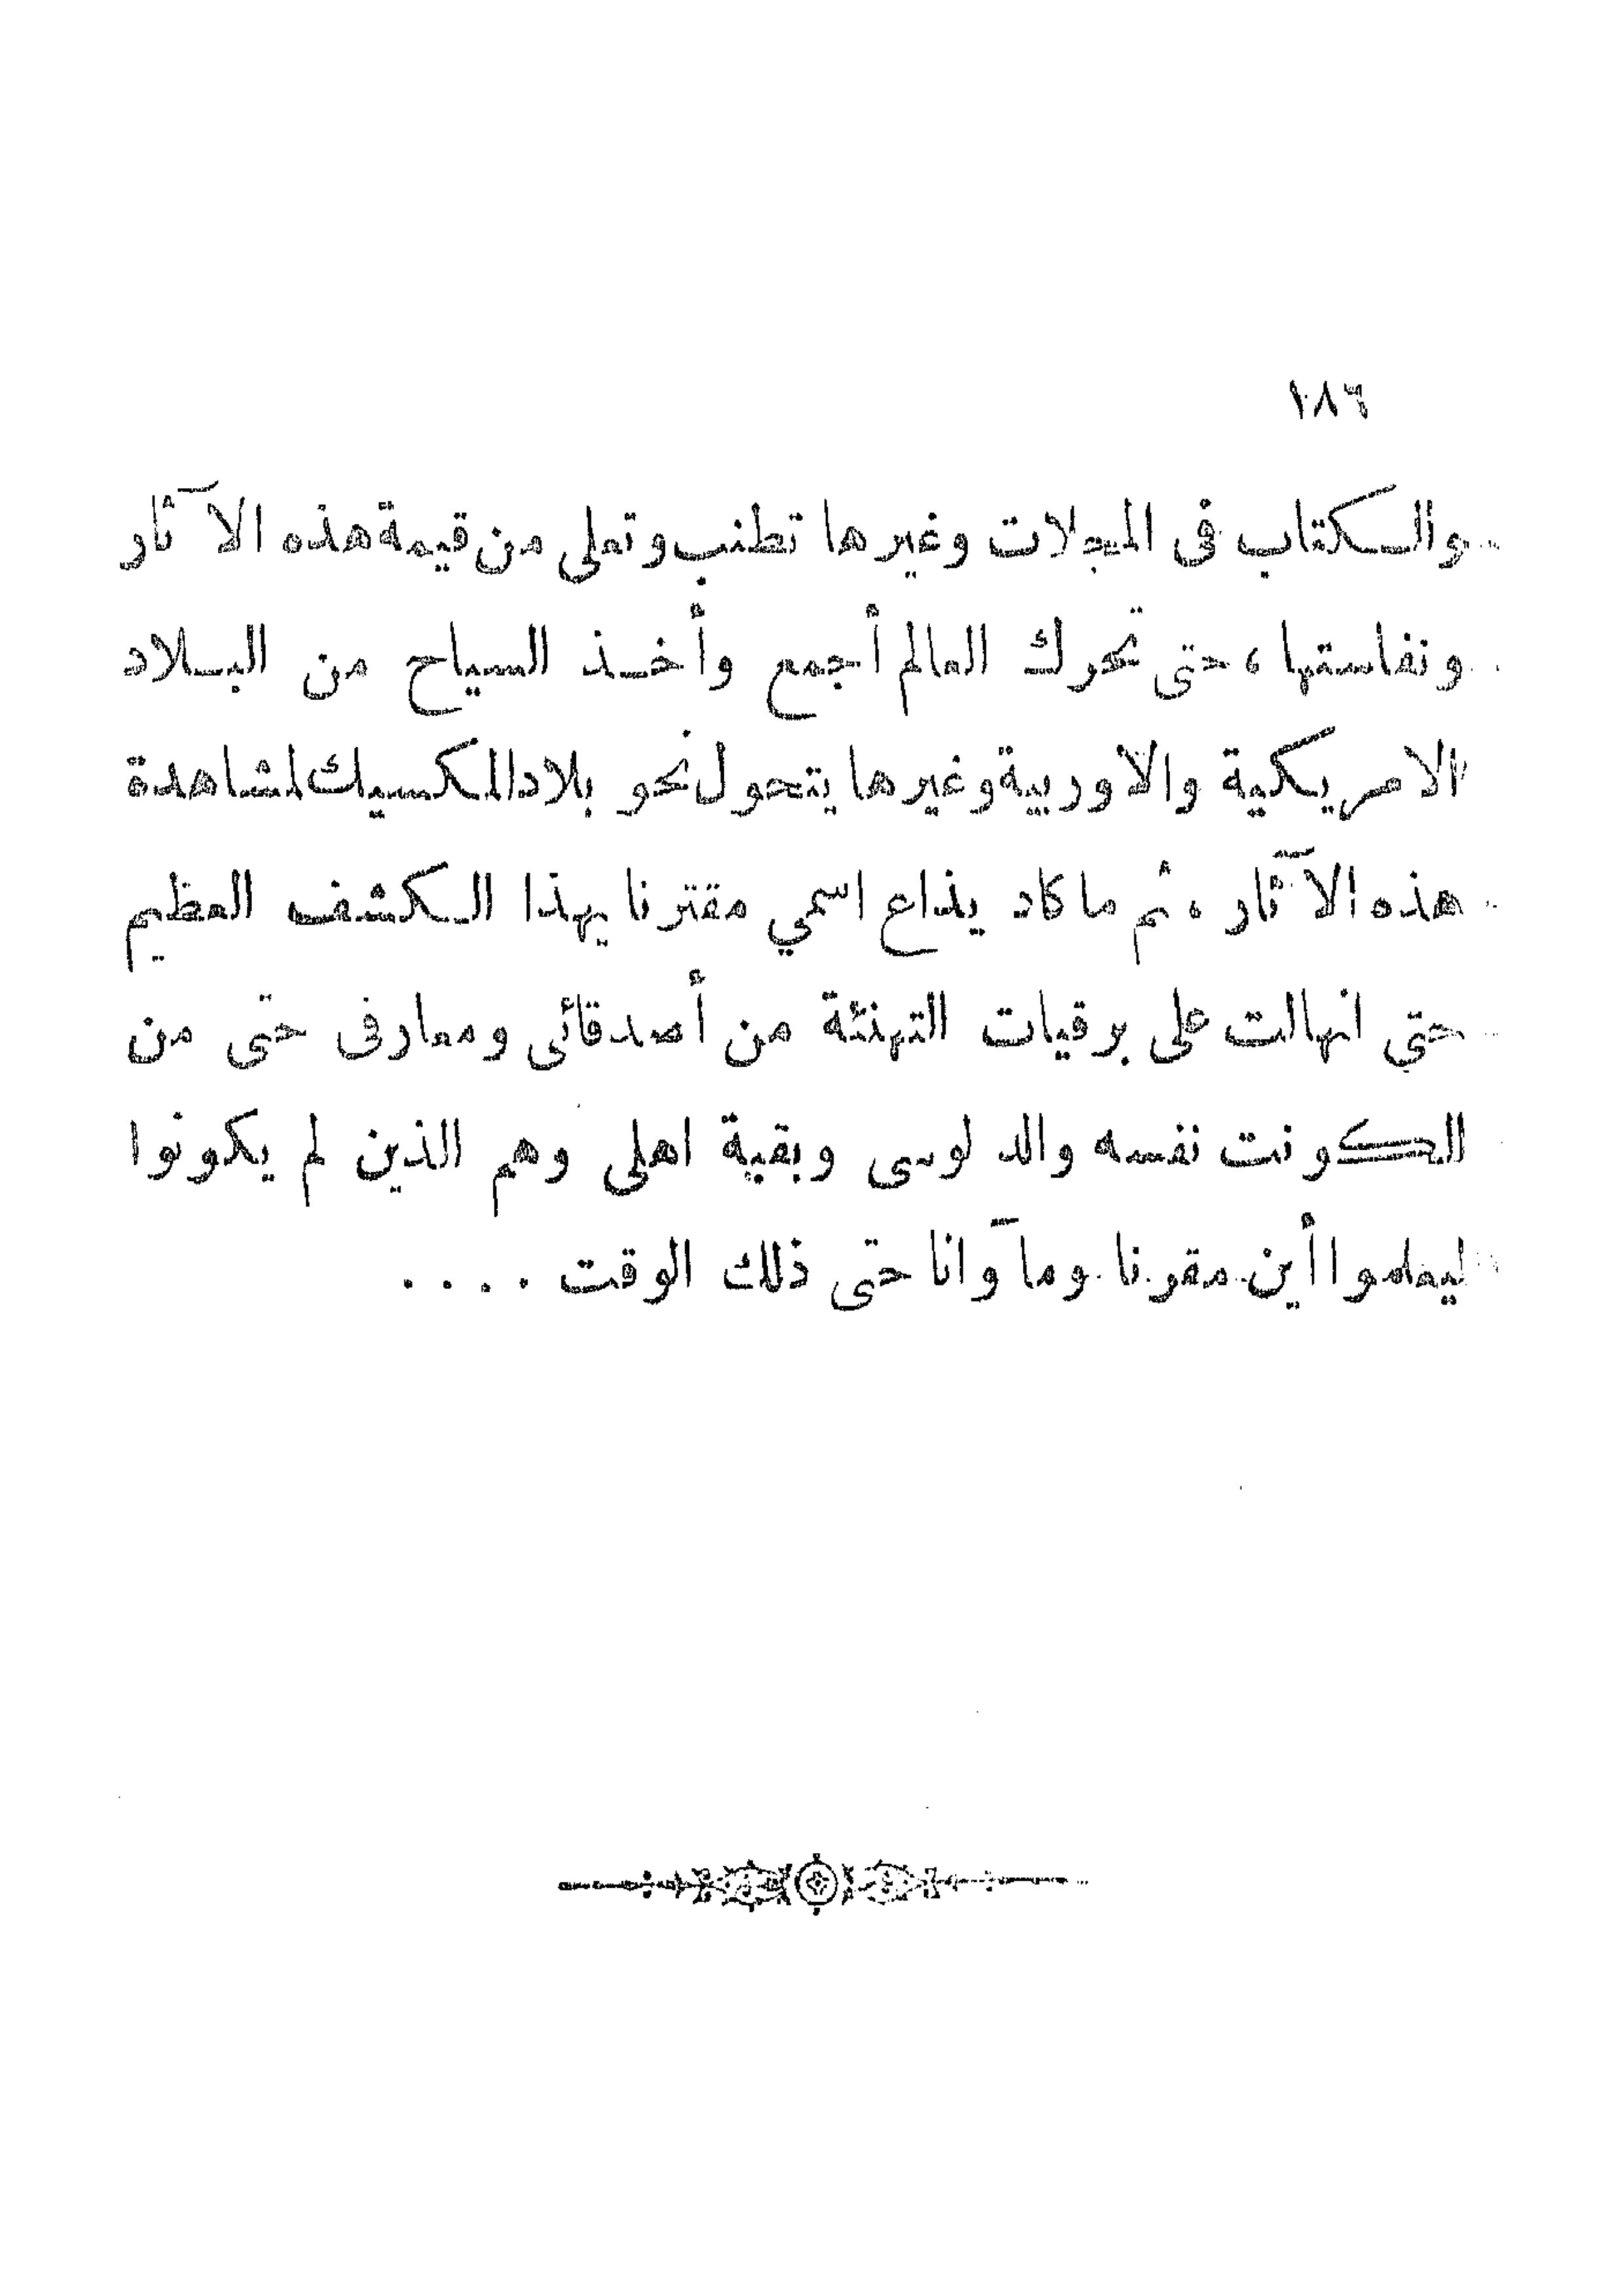 ١٨٦
والكتاب فى المجلات وغيرها تطنب وتعلى من قيمة هذه الآثار
ونفاستها ، حتى تحرك العالم أجمع وأخذ السياح من البلاد
الامريكية والاوربية وغيرها يتحول نحو بلاد المكسيك لمشاهدة
هذه الآثار ، ثم ما كاد يذاع اسمي مقترنا بهذا الكشف العظيم
حتى انهالت على برقيات التهنئة من أصدقائى ومعارفى حتى من
الكونت نفسه والد لوسى وبقية اهلى وهم الذين لم يكونوا
ليعلموا أين مقرنا ومآوانا حتى ذلك الوقت ....